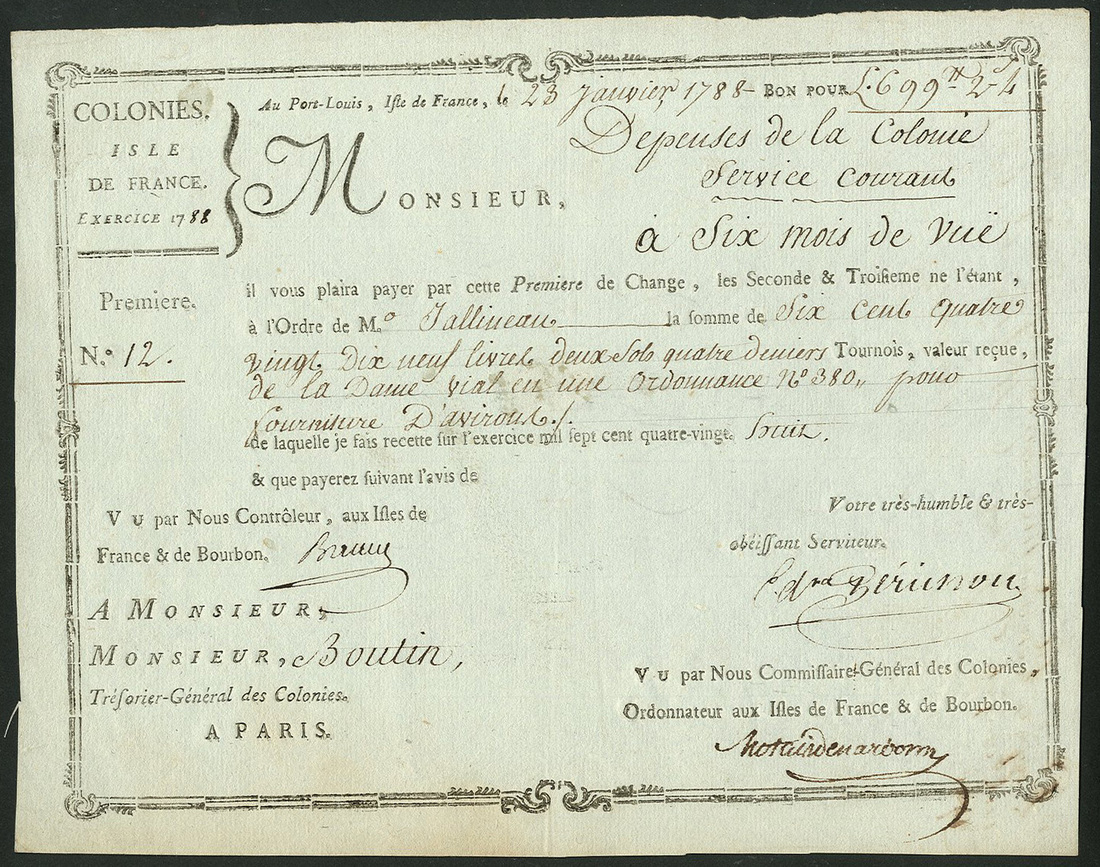 COLONIES.
ISLE
DE FRANCE.
EXERCICE 1788
Au Port-Louis, Isle de France, le 23 Janvier, 1788 BON POUR £.699ᵗᵗ 2ˢ 4
Depenses de la Colonie
Service Courant
MONSIEUR,
à Six mois de vuë
Premiere.
N.º 12.
il vous plaira payer par cette Premiere de Change, les Seconde & Troisieme ne l'étant,
à l'Ordre de M.º Jallineau la somme de Six Cent quatre
vingt Dix neuf livres deux Sols quatre deniers Tournois, valeur reçue,
de la Dame Vial en une Ordonnance Nº 380,, pour
fourniture D'avirons./.
de laquelle je fais recette sur l'exercice mil sept cent quatre-vingt huit.
& que payerez suivant l'avis de
VU par Nous Contrôleur, aux Isles de
France & de Bourbon.
Votre très-humble & très-
obéissant Serviteur.
A MONSIEUR,
MONSIEUR, Boutin,
Trésorier-Général des Colonies.
A PARIS.
VU par Nous Commissaire-Général des Colonies,
Ordonnateur aux Isles de France & de Bourbon.